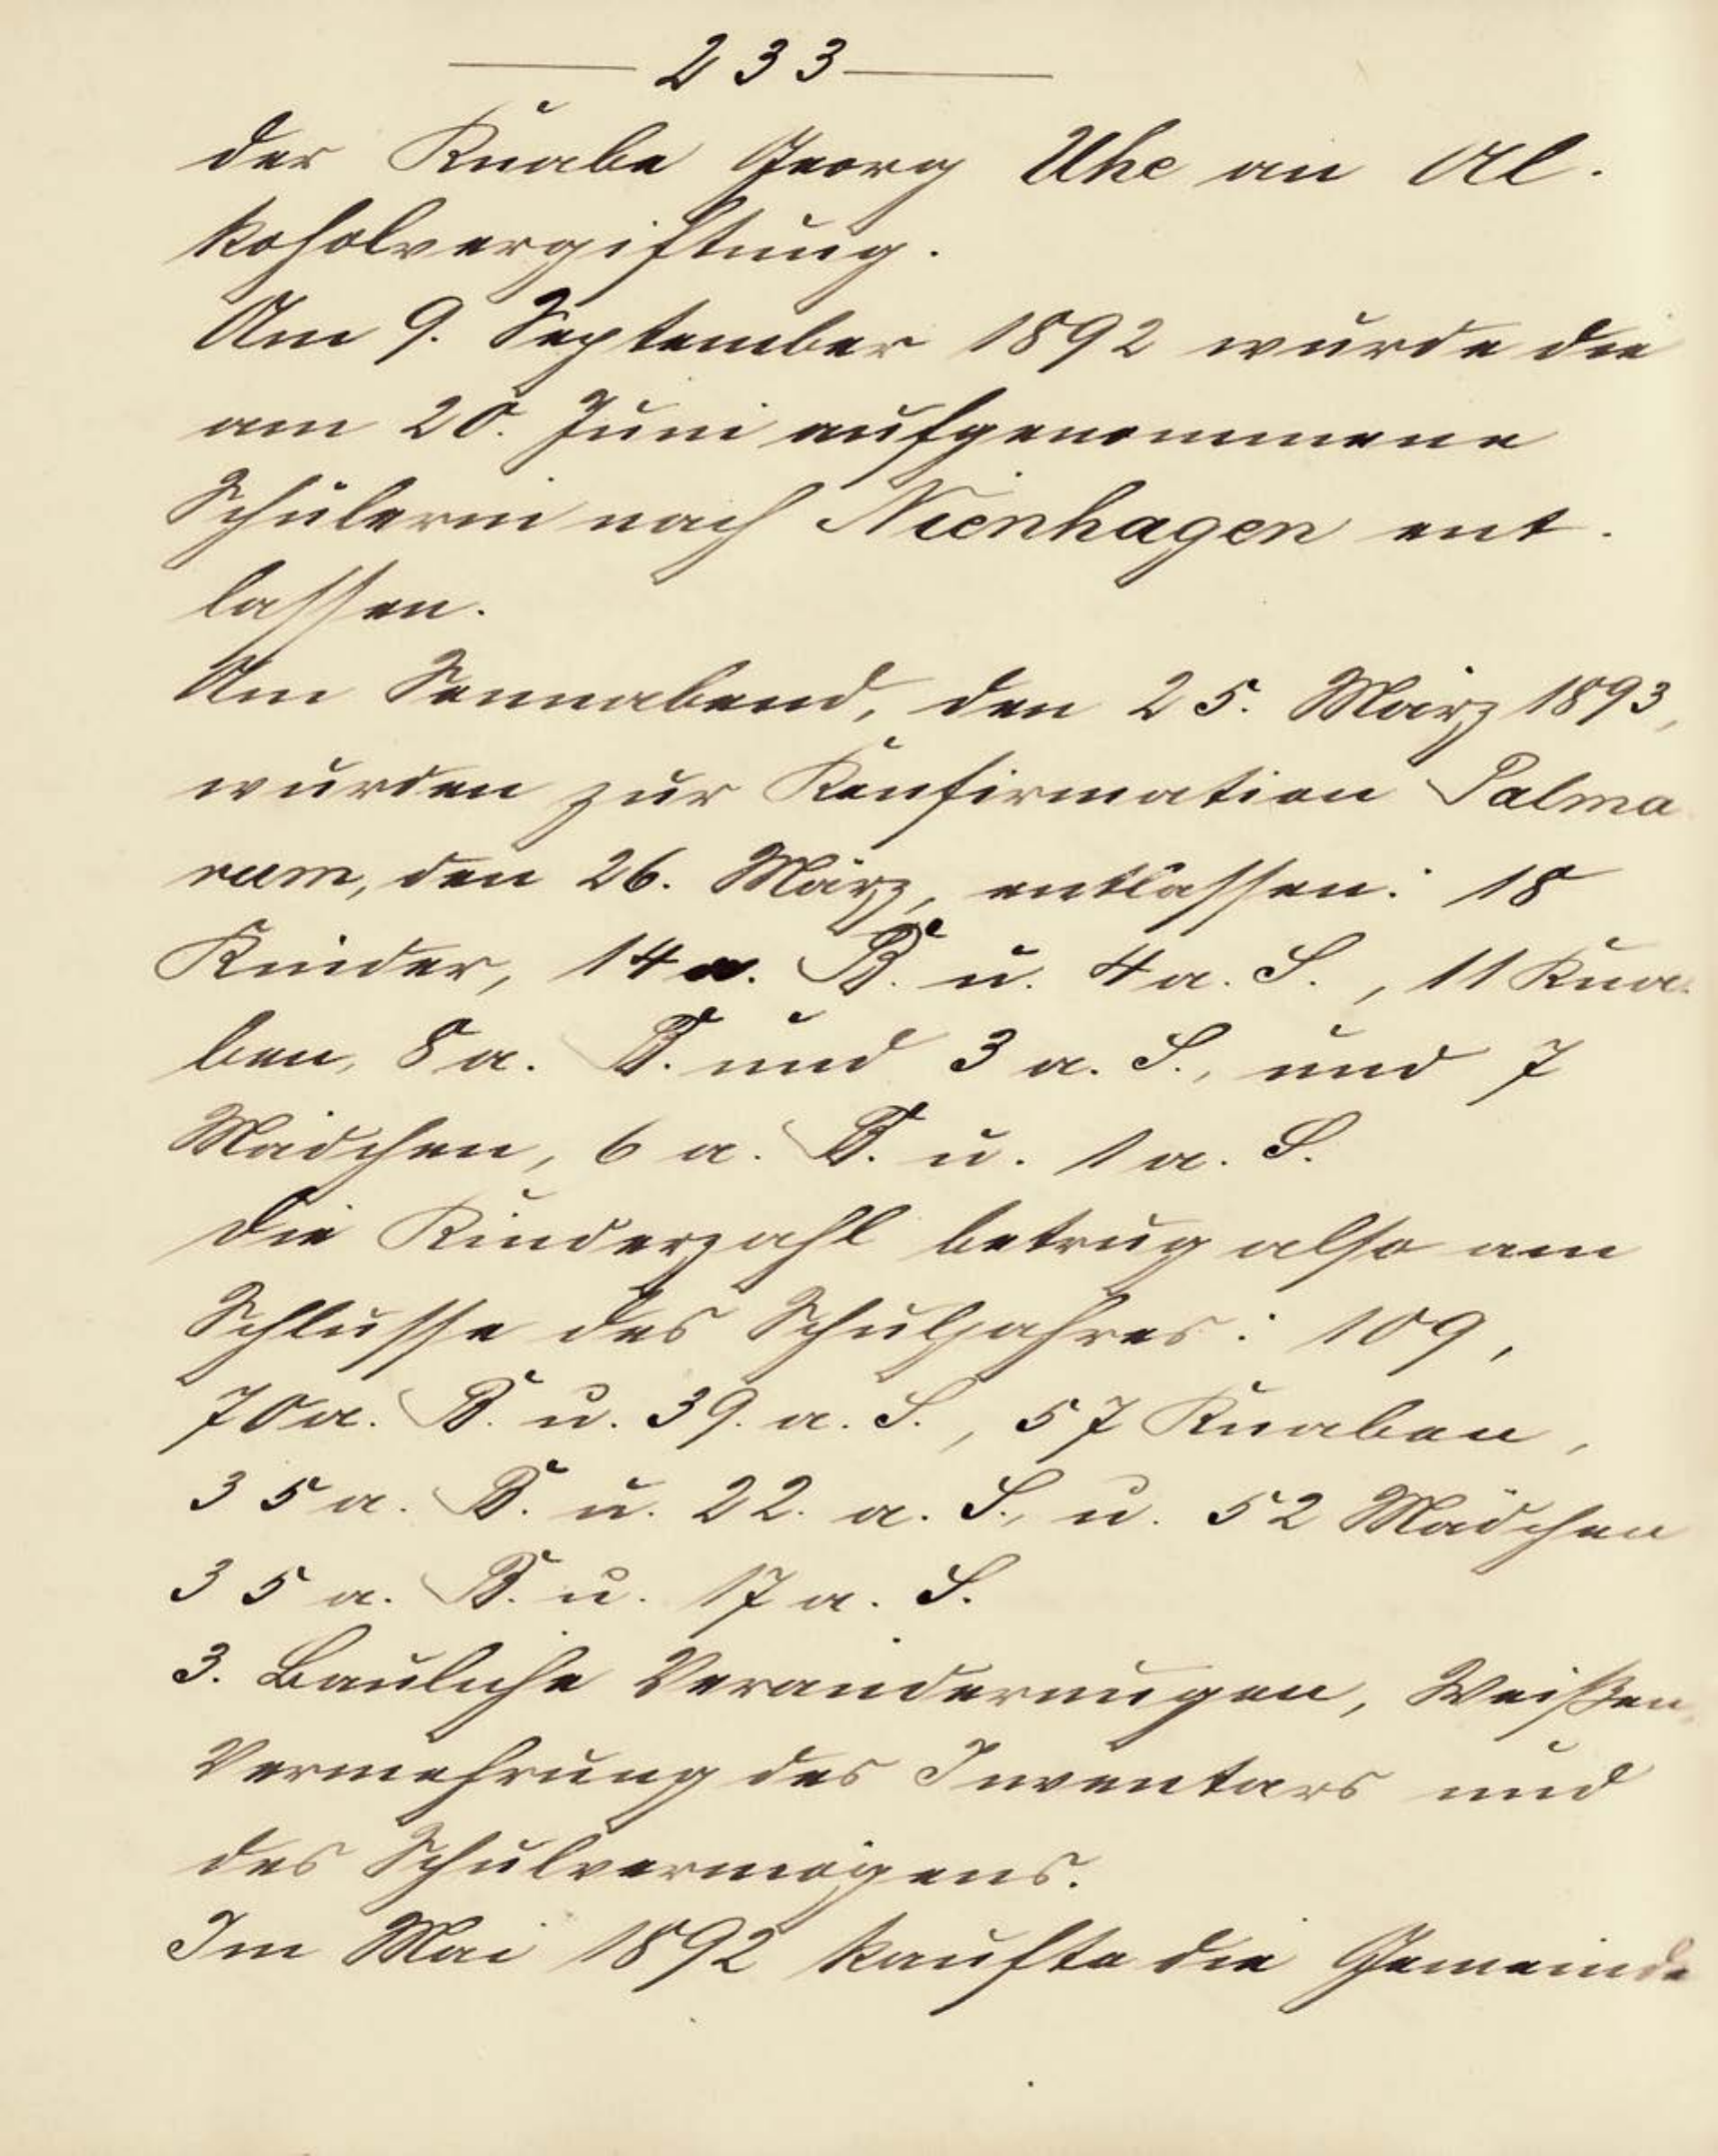 233
der Knabe Georg Uhe an Al-
koholvergiftung.
Am 9. September 1892 wurde die
am 20. Juni aufgenommene
Schülerin nach Nienhagen ent-
lassen.
Am Sonnabend, den 25. März 1893,
wurden zur Konfirmation Palma
rum, den 26. März, entlassen: 18
Kinder, 14 a. B. u. 4 a. S., 11 Kna-
ben, 8 a. B. und 3 a. S., und 7
Mädchen, 6 a. B. u. 1 a. S.
Die Kinderzahl betrug also am
Schlusse des Schuljahres: 109,
70 a. B. u. 39. a. S., 57 Knaben,
35 a. B. u. 22. a. S., u. 52 Mädchen
35 a. B. u. 17 a. S.
3. Bauliche Veränderungen, Weißen,
Vermehrung des Inventars und
des Schulvermögens.
Im Mai 1892 kaufte die Gemeinde